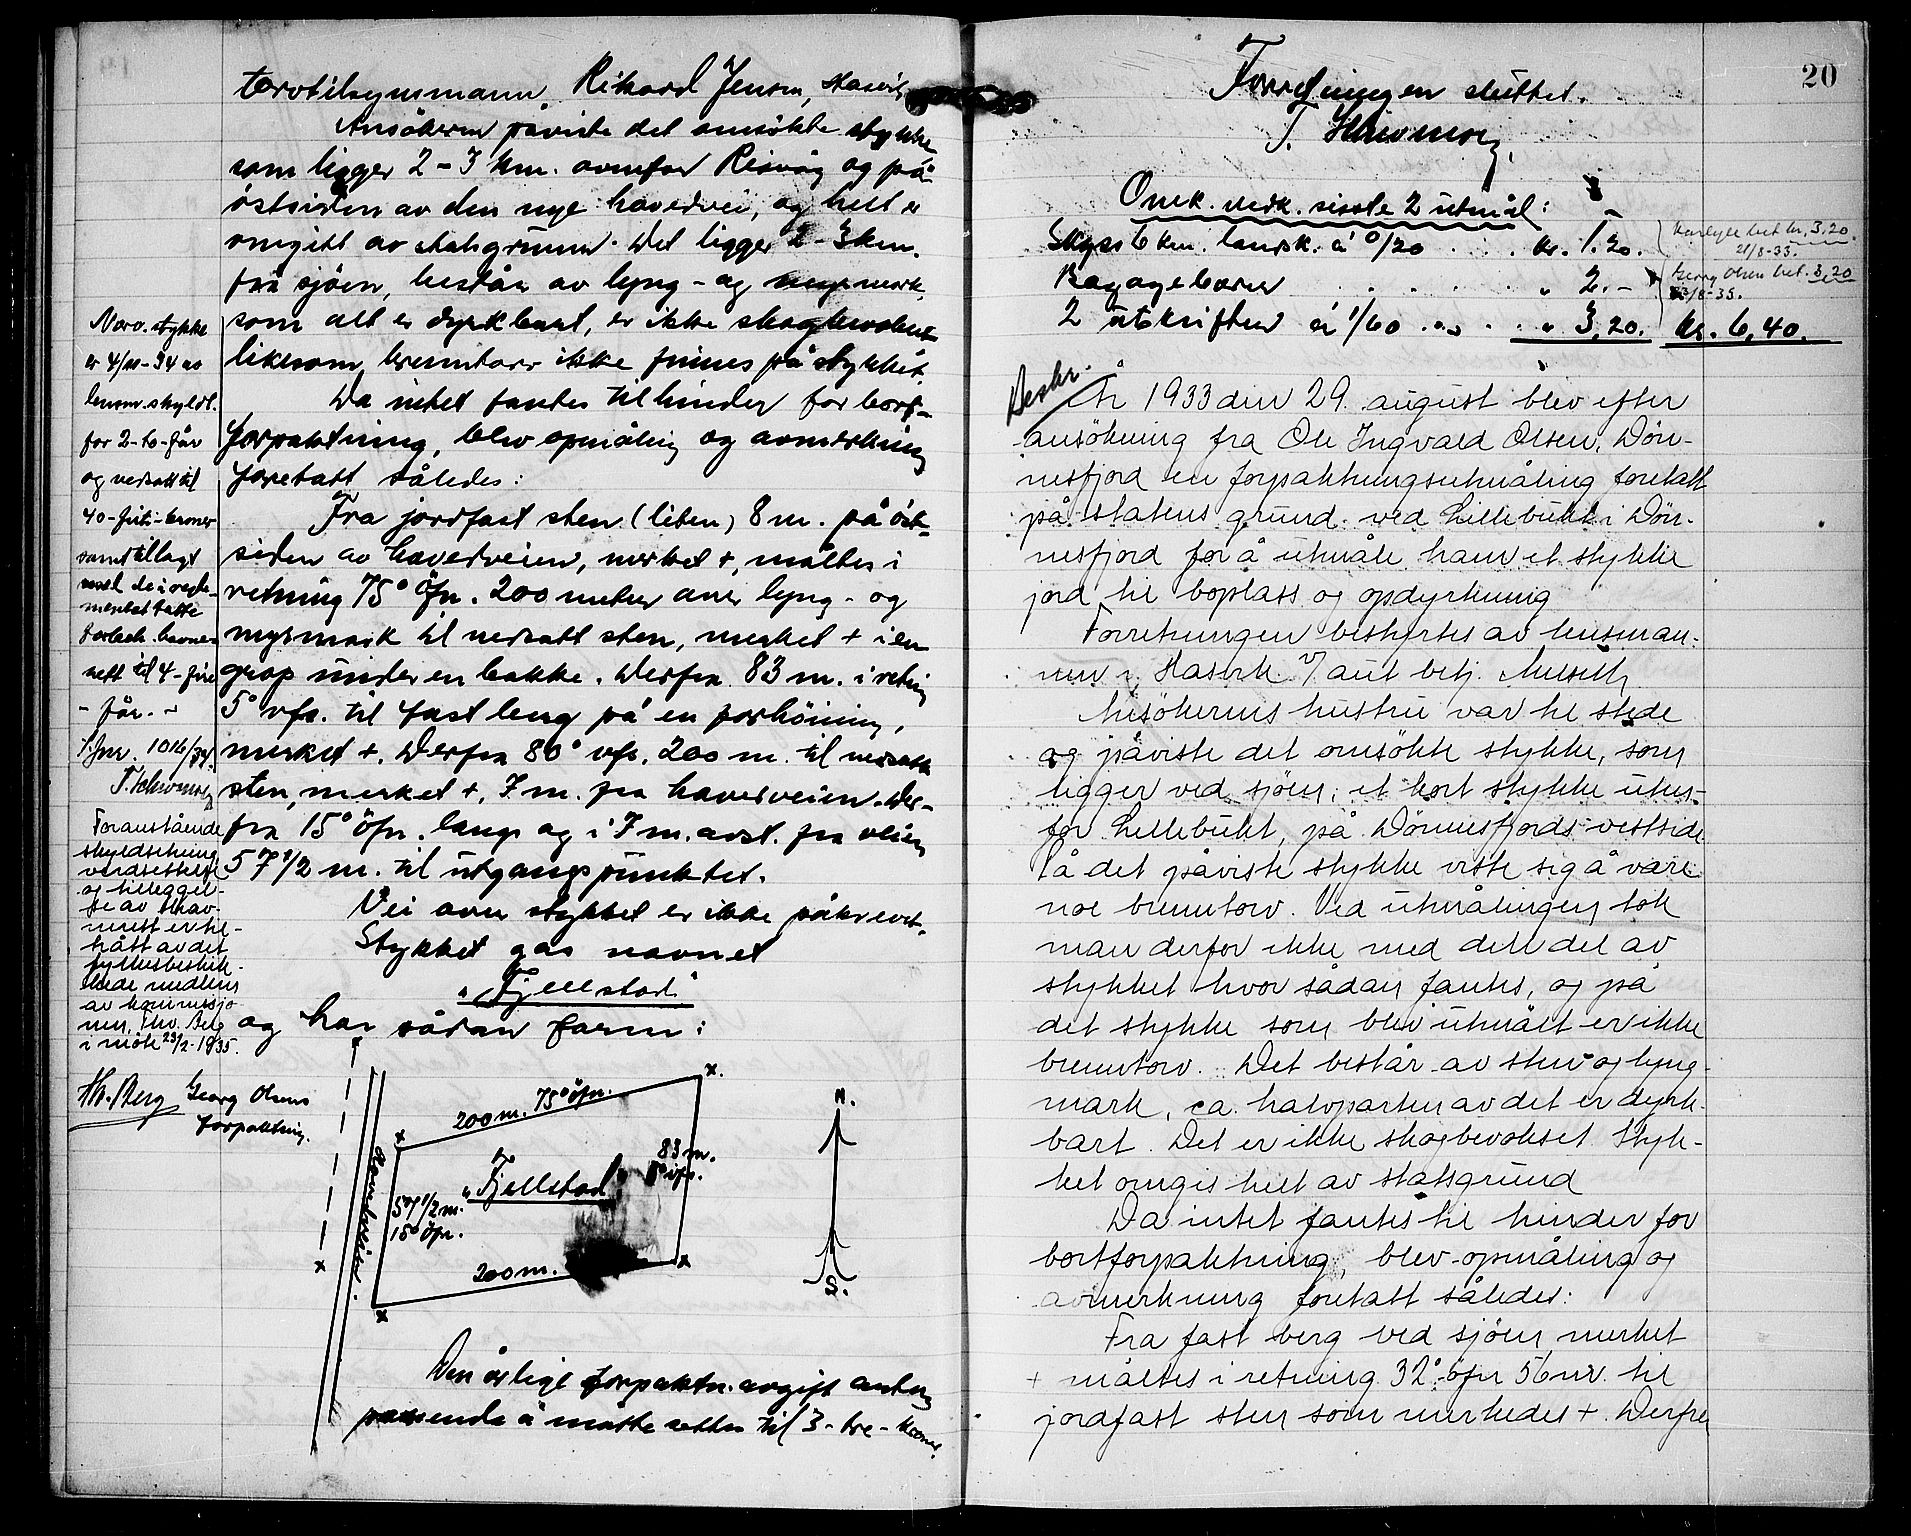 torvtilsynsmann Rikard Jensen, Hasvik
Ansökeren påviste det omsökte stykke
som ligger 2-3 km. ovenfor Risvåg og på
östsiden av den nye hovedvei, og helt er
omgitt av statsgrunn. Det ligger 2-3 km.
fra sjöen, består av lyng- og myrmark,
som alt er dyrkbart, er ikke skogbevokset
likesom brenntorv ikke finnes på stykket.
Da intet fantes til hinder for bort-
forpaktning, blev opmåling og avmerkning
foretatt således:
Fra jordfast sten (liten) 8 m. på öst-
siden av hovedveien, merket +, måltes i
retning 75° öfn. 200 meter over lyng- og
myrmark til nedsatt sten, merket + i en
grop under en bakke. Derfra 83 m. i retning
5° vfs. til fast berg på en forhöining,
merket +. Derfra 80° vfs. 200 m. til nedsatt
sten, merket +, 7 m. fra hovedveien. Der-
fra 15° öfn. langs og i 7 m. avst. fra veien
57 1/2 m. til utgangspunktet.
Vei over stykket er ikke påkrevet.
Stykket gis navnet
"Fjellstad"
og har sådan form:
Nærv. stykke
er 4/10-34 av
lensm. skyldt.
for 2-to-får
og verdsatt til
40-førti-kroner
samt tillagt
med de i regle-
mentet fatte
forbeh. havne-
rett til 4-fire
- får. -
J.jnr. 1016/34.
Foranstående
skyldsetning
verdsettelse
og tilleggel-
se av hav-
nerett er til-
trått av det
fylkesbeskik-
kede medlem
av kommisjo-
nen, Thv. Berg
i möte 23/2-1935.
Th. Berg
Georg Olsens
forpaktning.
Hovedveien.
200 m. 75° öfn.
"Fjellstad"
83 m.
5° vfs.
57 1/2 m.
15° öfn.
200 m.
N.
S.
Den årlige forpaktn.avgift antog
passende å måtte settes til 3-tre-kroner.
20
Forretningen sluttet.
Omk. vedk. siste 2 utmål:
Skyss 6 km. landsk. á 0/20 . . . kr. 1.20.
Bagagebærer . . . . . . " 2.-
2 utskrifter á 1/60 . . . . " 3,20. kr. 6,40.
bet. kr. 3,20.
21/8-33.
Georg Olsen bet. 3,20
23/8-35.
Beskr.
År 1933 den 29. august blev efter
ansökning fra Ole Ingvald Olsen, Dön-
nesfjord en forpaktningsutmåling foretatt
på statens grund ved Lillebukt i Dön-
nesfjord for å utmåle ham et stykke
jord til boplass og opdyrkning
Forretningen bestyrtes av lensman-
nen i Hasvik v/ aut betj.
Ansökerens hustru var til stede
og påviste det omsökte stykke, som
ligger ved sjöen, et kort stykke uten-
for Lillebukt, på Dönnesfjords vestside.
På det påviste stykke viste sig å være
noe brenntorv. Ved utmålingen tok
man derfor ikke med den del av
stykket hvor sådan fantes, og på
det stykke som blev utmålt er ikke
brenntorv. Det består av sten og lyng-
mark, ca. halvparten av det er dyrk-
bart. Det er ikke skogbevokset. Styk-
ket omgis helt av statsgrund
Da intet fantes til hinder for
bortforpaktning, blev opmåling og
avmerkning foretatt således:
Fra fast berg ved sjöen merket
+ måltes i retning 32° öfn 56 m. til
jordfast sten som merkedes +. Derfra